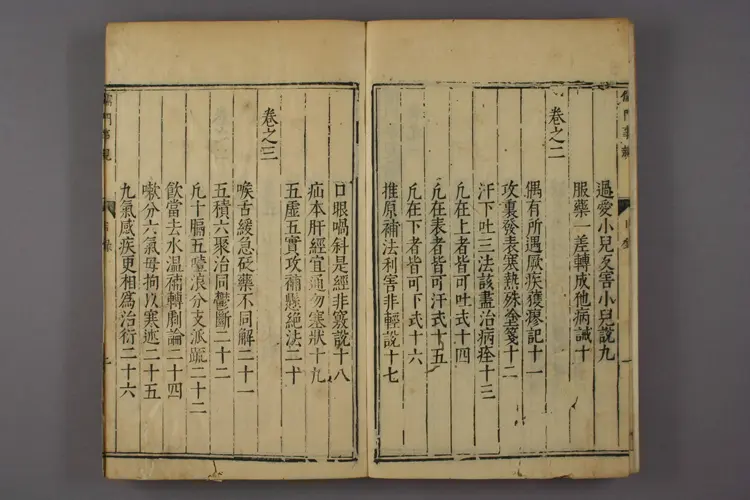 過愛小兒反害小兒說九
服藥一差轉成他病誡十
卷之二
偶有所遇厥疾獲瘳記十一
攻裏發表寒熱殊塗箋十二
汗下吐三法該盡治病詮十三
凡在上者皆可吐式十四
凡在表者皆可汗式十五
凡在下者皆可下式十六
推原補法利害非輕說十七
口眼喎斜是經非竅說十八
疝本肝經宜通勿塞狀十九
五虛五實攻補懸絕法二十
卷之三
喉舌緩急砭藥不同解二十一
五積六聚治同鬱斷二十二
凡十膈五噎浪分支派疏二十三
飲當去水溫補轉劇論二十四
嗽分六氣毋拘以寒述二十五
九氣感疾更相為治衍二十六
儒門事親